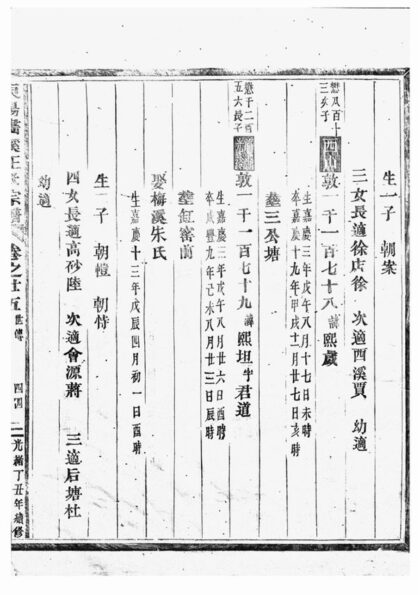 生一子 朝案
三女長適徐店徐 次適西溪賈 幼適
敦 千一百七十八 諱 熙歲
生嘉慶三年戊午八月十七日未時
卒嘉慶十九年甲戌十二月廿七日亥時
塟三公塘
五六長子
敦 千一百七十九 諱 熙坦 字君道
生嘉慶三年戊午八月廿六日酉時
卒咸豐九年己未八月廿三日辰時
塟缸窑前
娶梅溪朱氏
生嘉慶十三年戊辰四月初一日酉時
生一子 朝愷 朝恃
四女長適高砂陸 次適會源蔣 三適后塘杜
幼適
王氏宗譜 卷之廿五 世傳 四四 光緒丁丑年續修